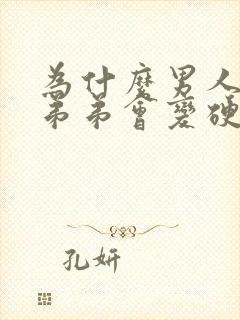 為什麼男人
弟弟會變硬
孔妍